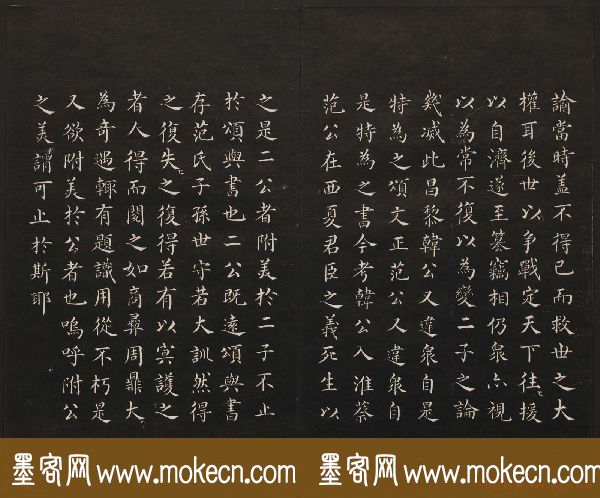 諭當時蓋不得已而救世之大
權耳後世以爭戰定天下往〻援
以自濟遂至篡竊相仍衆亦視
以為常不復以為變二子之論
幾滅此昌黎韓公又違衆自是
特為之頌文正范公人違衆自
是特為之書今考韓公入淮蔡
范公在西夏君臣之義死生以
之是二公者附美於二子不止
於頌與書也二公既遠頌與書
存范氏子孫世守若大訓然得
之復失之復得若有以冥護之
者人得而閱之如商彝周鼎大
為奇遇輒有題識用從不朽是
又欲附美於公者也嗚呼附公
之美謂可止於斯耶
墨客网 www.mokecn.com 墨客网 www.mokecn.com